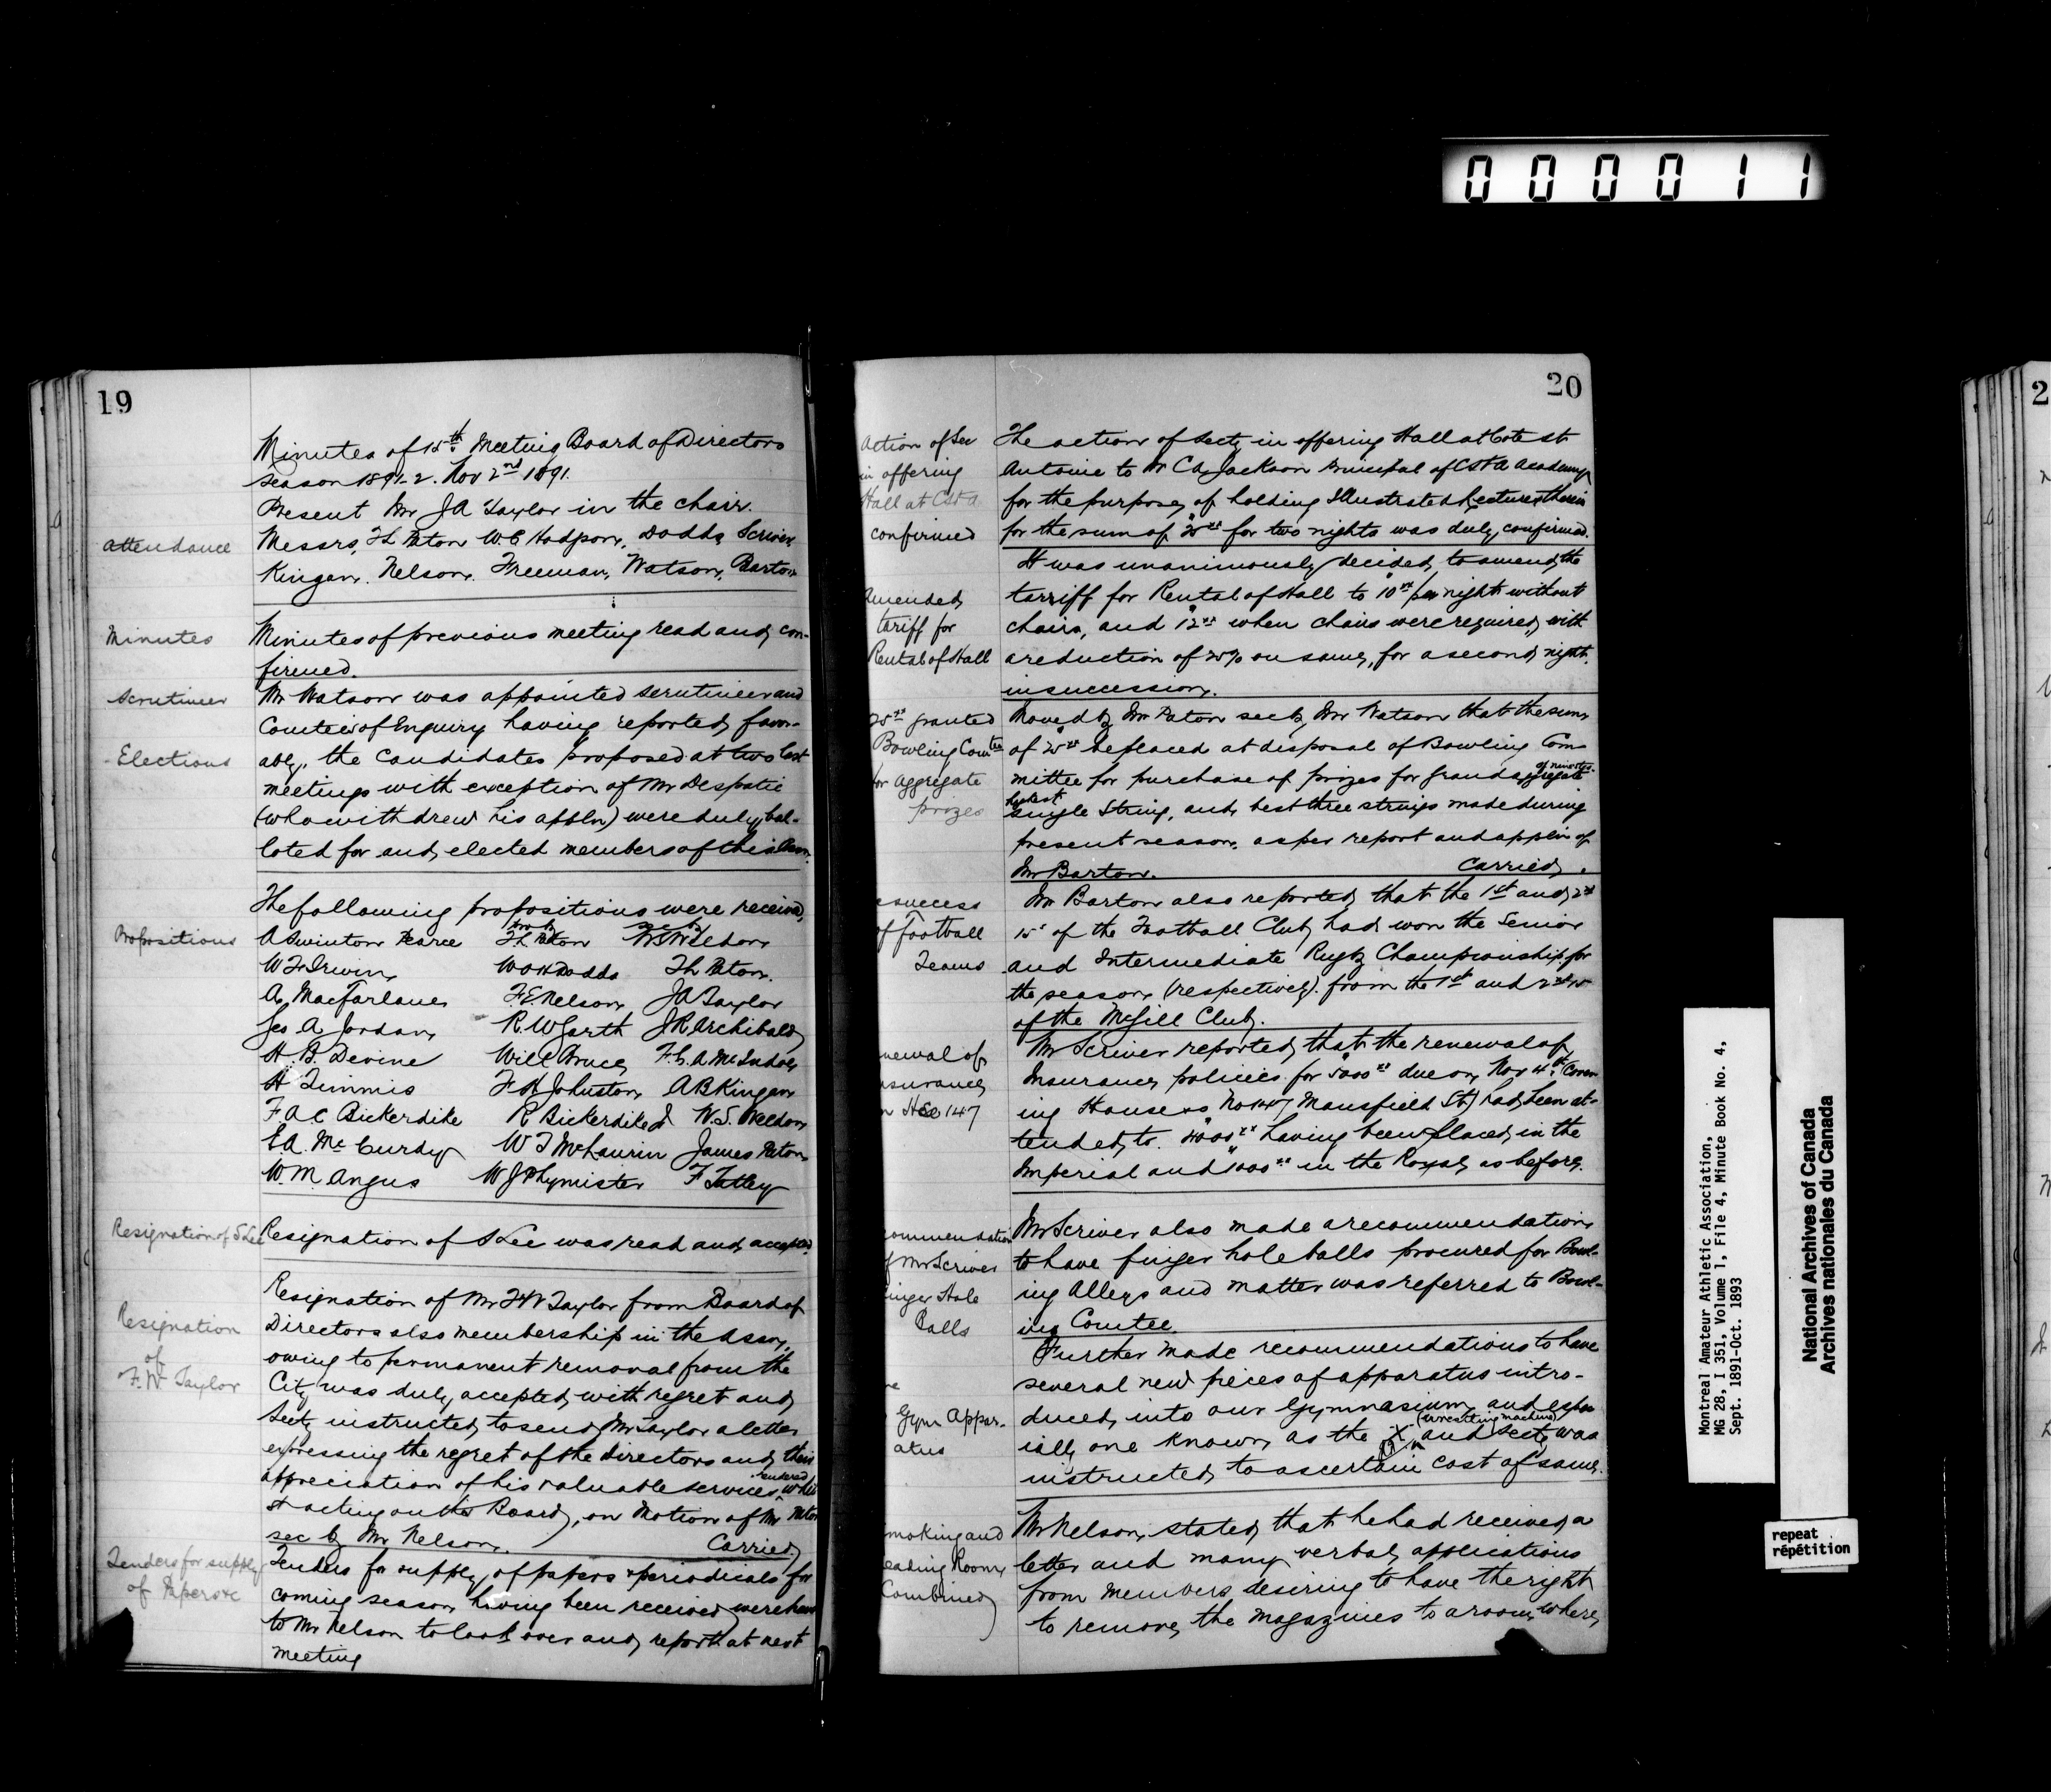 000011
19
Minutes of 15th Meeting Board of Directors
Season 1891-2. Nov 2nd 1891.
Present Mr J A Taylor in the chair.
Attendance
Messrs, T L Paton W C Hodgson, Dodds, Scriver
Kingan. Nelson. Freeman, Watson, Barton
Minutes
Minutes of previous meeting read and con-
firmed.
Scrutineer
Mr Watson was appointed scrutineer and
Comtee of Enquiry having reported favor-
Elections
ably, the Candidates proposed at two last
meetings with exception of Mr Despatie
(who withdrew his appln) were duly bal-
loted for and elected members of this Assn.
The following propositions were received,
Propositions
A Swinton Pearce T L Paton W S Weldon
W F Irwin W O H Dodds T L Paton.
A. MacFarlane F. E. Nelson J A Taylor
Geo A Jordan R. W Garth J R Archibald
H. B. Devine Will Bruce F. C. A McIndoe
H Timmis F H Johnston A B Kingan
F. A. C Bickerdike R Bickerdike Jr W. S. Weldon
E A. McCurdy W T McLaurin James Paton
W. M. Angus W J Phymister F Tatley
Resignation of S Lee
Resignation of S Lee was read and accepted.
Resignation
of
F. W Taylor
Resignation of Mr F W Taylor from Board of
Directors also membership in the Assn,
owing to permanent removal from the
City was duly accepted with regret and
Secty instructed to send Mr Taylor a letter
expressing the regret of the Directors and their
appreciation of his valuable services rendered whil
st acting on the Board, on Motion of Mr Paton
sec by Mr Nelson. Carried
Tenders for supply
of Papers &c
Tenders for supply of papers & periodicals for
coming season having been received were
to Mr Nelson to look over and report at next
meeting
20
Action of Sec
in offering
Hall at C St A
confirmed
The action of Secty in offering Hall at Cote St
Antoine to Mr C A Jackson Principal of C St A Academy
for the purpose of holding Illustrated Lectures therein
for the sum of for two nights was duly confirmed.
It was unanimously decided to amend the
Amended
tariff for
Rental of Hall
tarriff for Rental of Hall to $10xx per night without
chairs, and $12xx when chairs were required, with
a reduction of on same, for a second night
in succession.
25xx granted
Bowling Comtee
for Aggregate
prizes
Moved by Mr Paton sec by Mr Watson that the sum
of $25xx be placed at disposal of Bowling Com
mittee for purchase of prizes for Grand aggregate
highest single String, and best three strings made during
present season. as per report and appln of
Mr Barton. Carried.
success
of Football
Teams
Mr Barton also reported that the 1st and 2nd
15s of the Football Club had won the Senior
and Intermediate Rugby Championship for
the season (respectively). from the 1st and 2nd 15
of the McGill Club.
newal of
nsurance
n Hse 147
Mr Scriver reported that the renewal of
Insurance policies for $5000xx due on Nov 4th (Cover
ing House No 147 Mansfield St) had been at-
tended to. $4000xx having been placed in the
Imperial and $1000xx in the Royal as before.
commendation
f Mr Scriver
inger Hole
Balls
Mr Scriver also made a recommendation
to have finger hole balls procured for Bowl-
ing Alleys and matter was referred to Bowl-
ing Comtee.
re
Gym Appar-
atus
Further made recommendations to have
several new pieces of apparatus intro-
duced into our Gymnasium, and espec
ially one known as the (wrestling machine) and Secty was
instructed to ascertain cost of same.
moking and
eading Room
Combined
Mr Nelson stated that he had received a
letter and many verbal applications
from members desiring to have the right
to remove the magazines to a room where
Montreal Amateur Athletic Association,
MG 28, I 351, Volume 1, File 4, Minute Book No. 4,
Sept. 1891-Oct. 1893
National Archives of Canada
Archives nationales du Canada
repeat
répétition
2